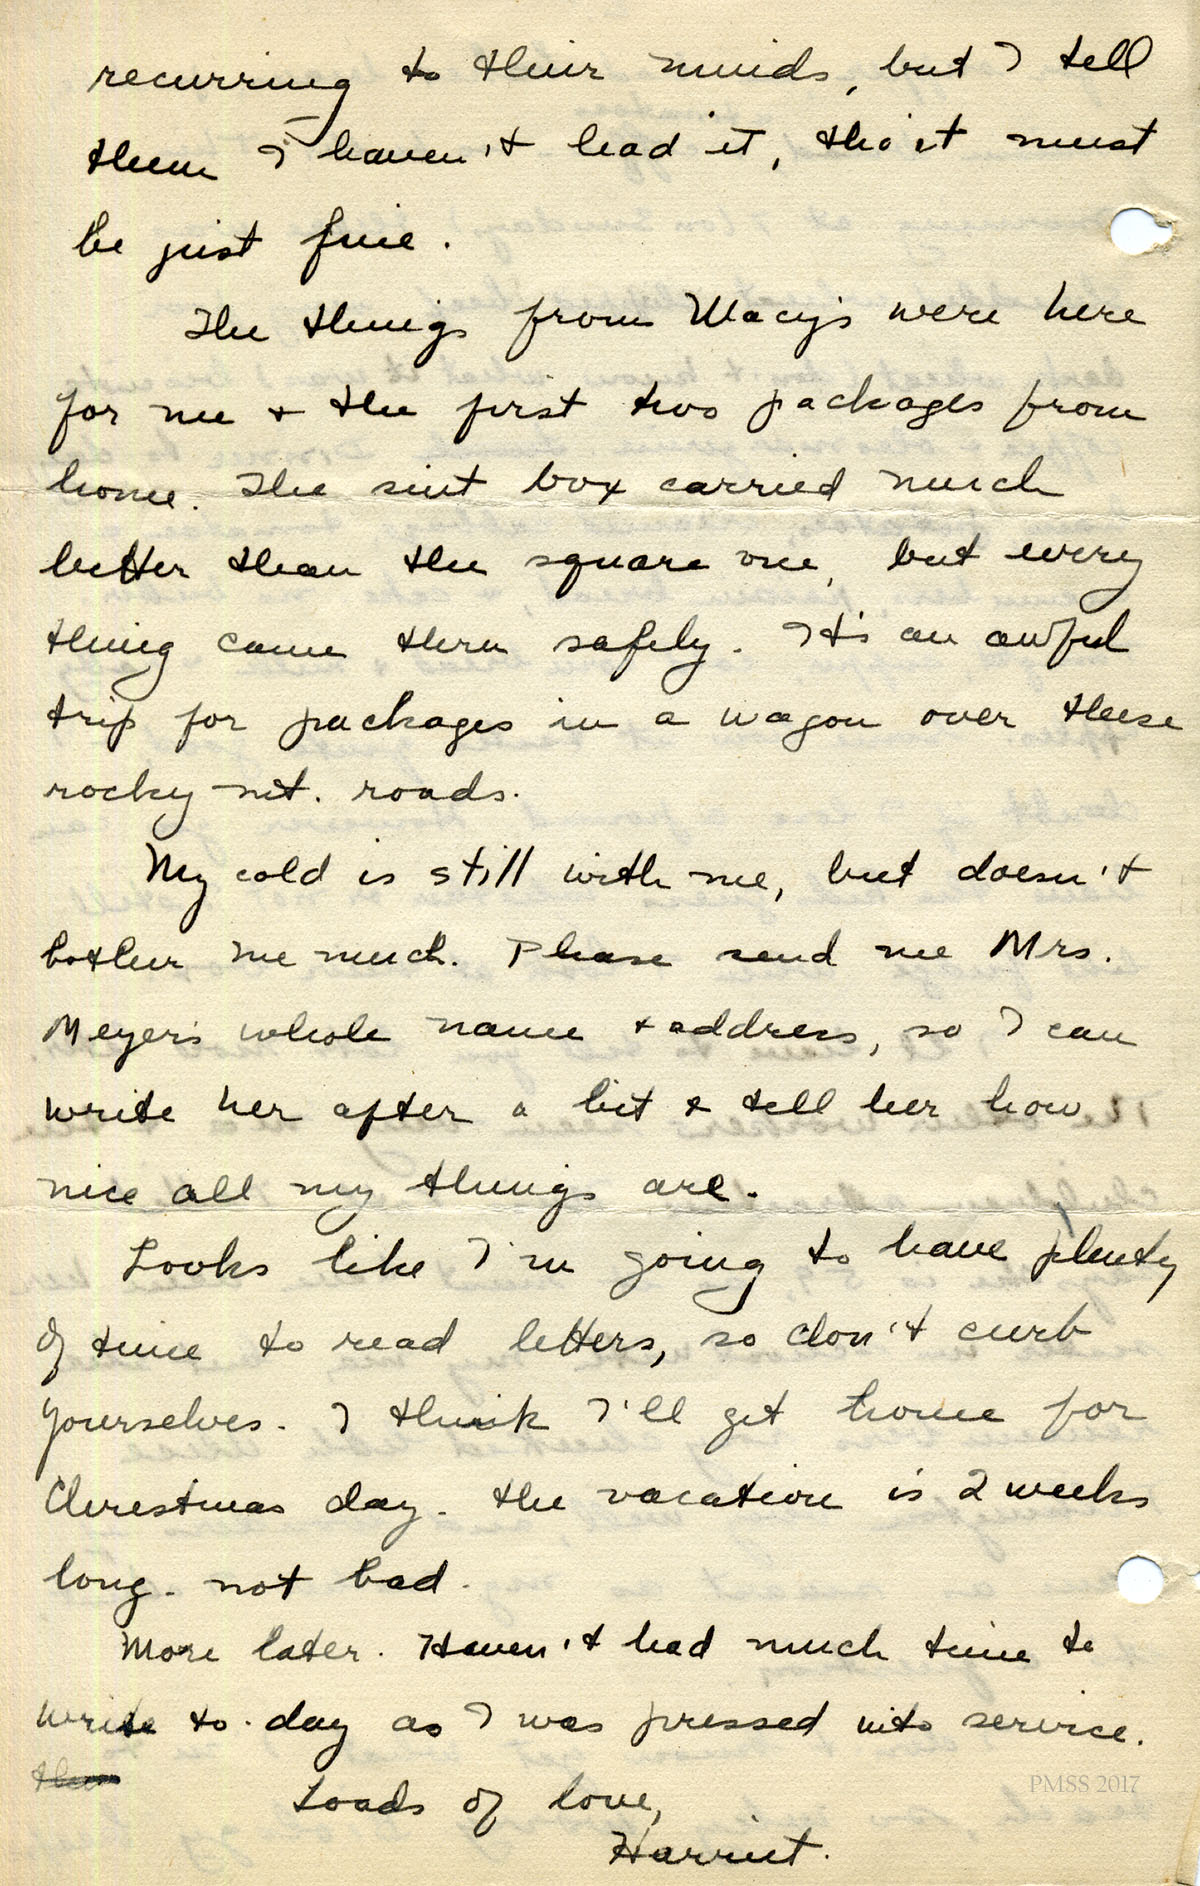 recurring to their minds, but I tell
them I haven't had it, tho it must
be just fine.
The things from Macy's were here
for me + the first two packages from
home. The suit box carried much
better than the square one, but every
thing came thru safely. It's an awful
trip for packages in a wagon over these
rocky mt. roads.
My cold is still with me, but doesn't
bother me much. Please send me Mrs.
Meyer's whole name + address, so I can
write her after a bit & tell her how
nice all my things are.
Looks like I'm going to have plenty
of time to read letters, so don't curb
yourselves. I think I'll get home for
Christmas day. the vacation is 2 weeks
long. not bad.
More later. Haven't had much time to
write to-day as I was pressed into service.
Loads of love,
Harriet.
PMSS 2017